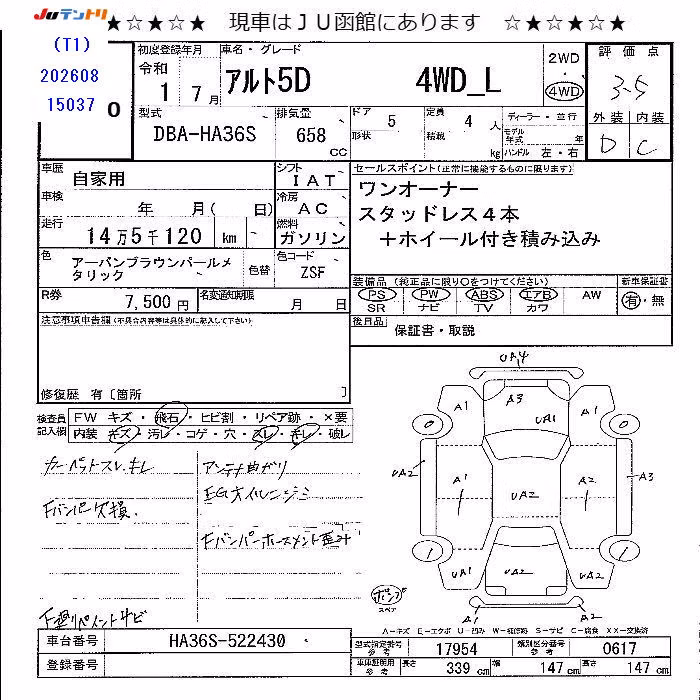 Juテントリ ★☆★☆★ 現車はＪＵ函館にあります ☆★☆★☆★
(T1)
202608
15037
0
初度登録年月
令和
1 7月
車名・グレード
アルト5D 4WD_L
2WD
・
4WD
評価点
3.5
外装 内装
D C
型式
DBA-HA36S
排気量
658
CC
ドア 5
形状
定員 4 人
積載 kg
ディーラー・並行
モデル年式 年
ハンドル 左・右
車歴 自家用
シフト IAT
車検 年 月( 日)
冷房 AC
走行 14万5千120 km
燃料 ガソリン
色 アーバンブラウンパールメタリック
色替
色コード ZSF
R券 7,500円
名変通知期限 月 日
セールスポイント(正常に機能するものに限ります)
ワンオーナー
スタッドレス４本
＋ホイール付き積み込み
装備品 (純正品に限り○をつけてください)
新車保証書
PS PW ABS エアB AW
SR ナビ TV カワ
有・無
後日品 保証書・取説
注意事項車書欄(不具合内容等は具体的に記入して下さい)
修復歴 有〔箇所 〕
検査員記入欄
FW キズ・飛石・ヒビ割・リペア跡・×要
内装 キズ・汚レ・コゲ・穴・スレ・キレ・破レ
カーペットスレ.キレ
アンテナ曲ガリ
EGオイルニジミ
Fバンパー欠損.
Fバンパーホースメント歪み
UA4
A1 A3 UA1 A1
0 0
UA2 A1 UA2 A2 A3
1 1
UA1 UA2 UA2
A1 A2
スペア
A-キズ E-エクボ U-凹み W-補修跡 S-サビ C-腐食 XX-交換済
車台番号 HA36S-522430
登録番号
型式指定番号 参考 17954
類別区分番号 参考 0617
車体証明用 参考 長さ 339 cm 幅 147 cm 高さ 147 cm